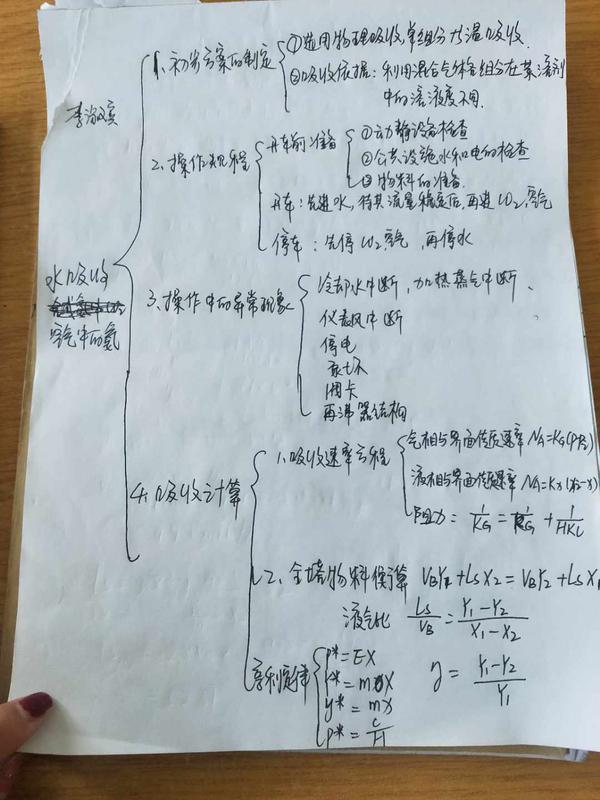 1、初步方案的制定
①选用物理吸收,单组分大温吸收.
②吸收依据:利用混合气体各组分在某溶剂
中的溶液度不同.
李
2、操作规程
开车前准备
①动静设备检查
②公共设施水和电的检查
③物料的准备.
开车:先进水,待其流量稳定后,再进CO2,空气
停车:先停CO2空气,再停水
水吸收
空气中的氨
3、操作中的异常现象
冷却水中断,加热蒸气中断、
仪表风中断
停电
泵坏
阀卡
再沸器结构
4、吸收计算
1、吸收速率方程
气相与界面传质速率 NA=KG(P-Pi)
液相与界面传质速率 NA=Kx(xi-x)
阻力= 1/KG = 1/KG + 1/HKL
2、全塔物料衡算 VBY1+LSX2=VBY2+LSX1
液气比 LS/VB = Y1-Y2/X1-X2
亨利定律
P*=EX
Y*=mX
y*=mx
P*=C/H
y = Y1-Y2/Y1